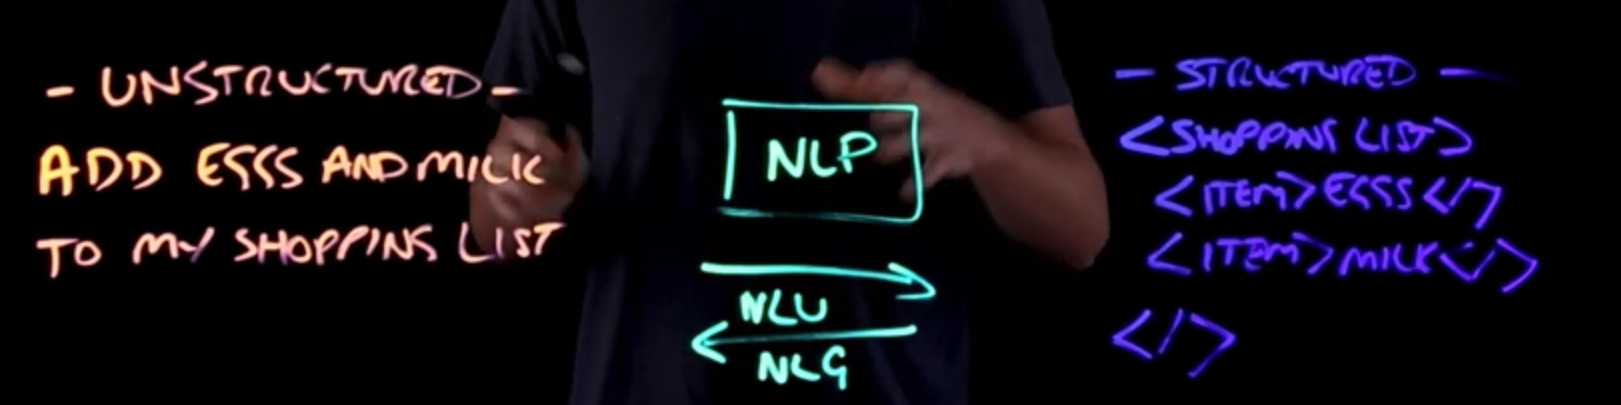 - UNSTRUCTURED -
ADD EGGS AND MILK
TO MY SHOPPING LIST
NLP
NLU
NLG
- STRUCTURED -
<SHOPPING LIST>
<ITEM> EGGS </>
<ITEM> MILK </>
</>